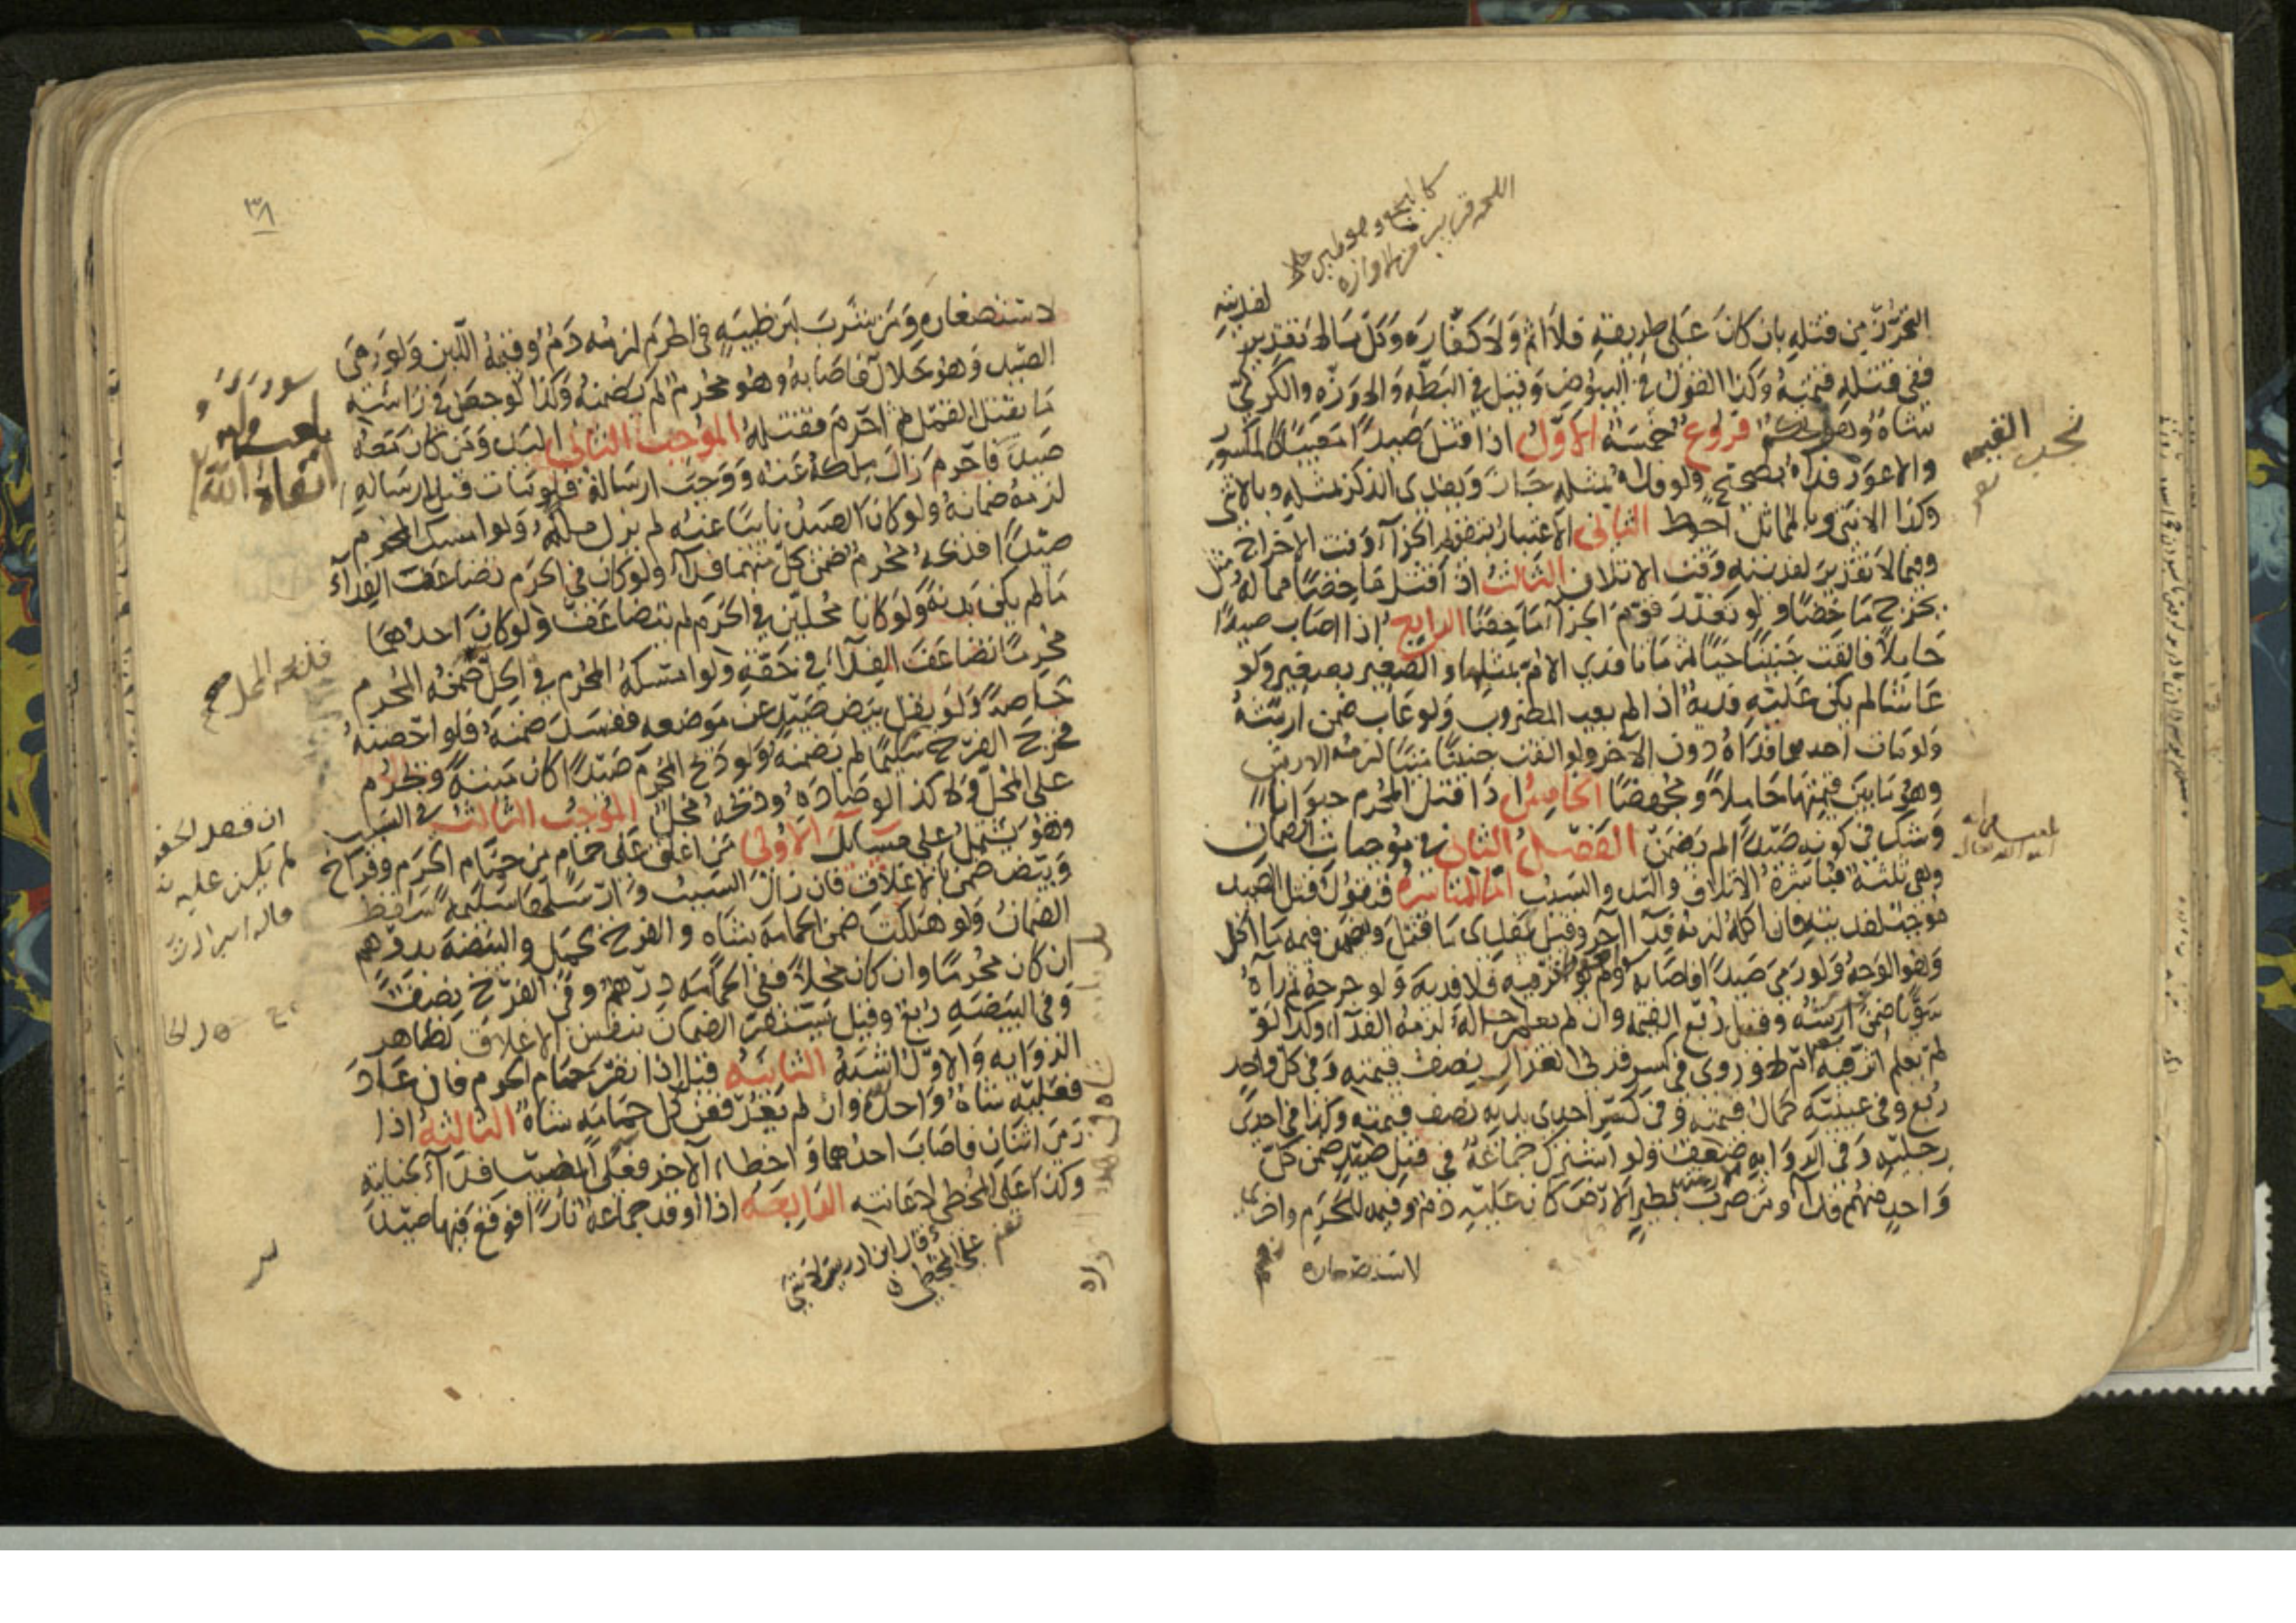 التحرز من قتله بان كان على طريقه فلا اثم ولا كفارة وكل ما لا تقدير لفديته
ففي قتله قيمته وكذا القول في البيوض وقيل في البطة والاوزة والكركي
شاة وهو تحكم فروع خمسة الاول اذا قتل صيدا معيبا كالمكسور
والاعور فداه بصحيح ولو فداه بمثله جاز ويفدي الذكر بمثله وبالانثى
وكذا الانثى وبالمماثل احوط الثاني الاعتبار بتقويم الجزآء وقت الاخراج
وفيما لا تقدير لفديته وقت الاتلاف الثالث اذا قتل ماخضا مما له مثل
يخرج ماخضا ولو تعذر قوم الجزآء ماخضا الرابع اذا اصاب صيدا
حاملا فالقت جنينا حيا ثم ماتا فدي الام بمثلها والصغير بصغير ولو
عاشا لم يكن عليه فدية اذا لم يعب المضروب ولو عاب ضمن ارشه
ولو مات احدهما فداه دون الآخر ولو القت جنينا ميتا لزمه الارش
وهو ما بين قيمتها حاملا ومجهضا الخامس اذا قتل المحرم حيوانا
وشك في كونه صيدا لم يضمن الفصل الثاني في موجبات الضمان
وهي ثلثة مباشرة الاتلاف واليد والسبب اما المباشرة فنقول قتل الصيد
موجب لفديته فان اكله لزمه فدآء آخر وقيل يفدي ما قتل ويضمن قيمة ما اكل
وهو الوجه ولو رمى صيدا فاصابه ولم يؤثر فيه فلا فدية ولو جرحه ثم رآه
سويا ضمن ارشه وقيل ربع القيمة وان لم يعلم حاله لزمه الفدآء وكذا لو
لم يعلم اثر فيه ام لا وروي في كسر قرني الغزال نصف قيمته وفي كل واحد
ربع وفي عينيه كمال قيمته وفي كسر احدى يديه نصف قيمته وكذا في احدى
رجليه وفي الرواية ضعف ولو اشترك جماعة في قتل صيد ضمن كل
واحد منهم فدآء ومن ضرب بطير الارض كان عليه دم وقيمة للحرم واخرى
لاستصغاره
تجب القيمة
لاستصغاره ومن شرب لبن ظبية في الحرم لزمه دم وقيمة اللبن ولو رمى
الصيد وهو حلال فاصابه وهو محرم لم يضمنه وكذا لو جعل في رأسه
ما يقتل القمل ثم احرم فقتله الموجب الثاني اليد ومن كان معه
صيد فاحرم زال ملكه عنه ووجب ارساله فلو مات قبل ارساله
لزمه ضمانه ولو كان الصيد نائيا عنه لم يزل ملكه ولو امسك المحرم
صيدا فذبحه محرم ضمن كل منهما فدآء ولو كان في الحرم تضاعف الفدآء
ما لم يكن بدنة ولو كانا محلين في الحرم لم يتضاعف ولو كان احدهما
محرما تضاعف الفدآء في حقه ولو امسكه المحرم في الحل ضمنه المحرم
خاصة ولو نقل بيض صيد عن موضعه ففسد ضمنه فلو احضنه
فخرج الفرخ سليما لم يضمنه ولو ذبح المحرم صيدا كان ميتة وحرم
على المحل ولا كذا لو صاده وذبحه محل الموجب الثالث في السبب
وهو يشتمل على مسائل الاولى من اغلق على حمام من حمام الحرم وفراخ
وبيض ضمن بالاغلاق فان زال السبب وارسلها سليمة سقط
الضمان ولو هلكت ضمن الحمامة بشاة والفرخ بحمل والبيضة بدرهم
ان كان محرما وان كان محلا ففي الحمامة درهم وفي الفرخ نصف
وفي البيضة ربع وقيل يستقر الضمان بنفس الاغلاق لظاهر
الرواية والاول اشبه الثانية قيل اذا نفر حمام الحرم فان عاد
فعليه شاة واحدة وان لم يعد فعن كل حمامة شاة الثالثة اذا
رمى اثنان فاصاب احدهما واخطاء الآخر فعلى المصيب فدآء بجنايته
وكذا على المخطي لاعانته الرابعة اذا اوقد جماعة نارا فوقع فيها صيد
فذبحه المحل